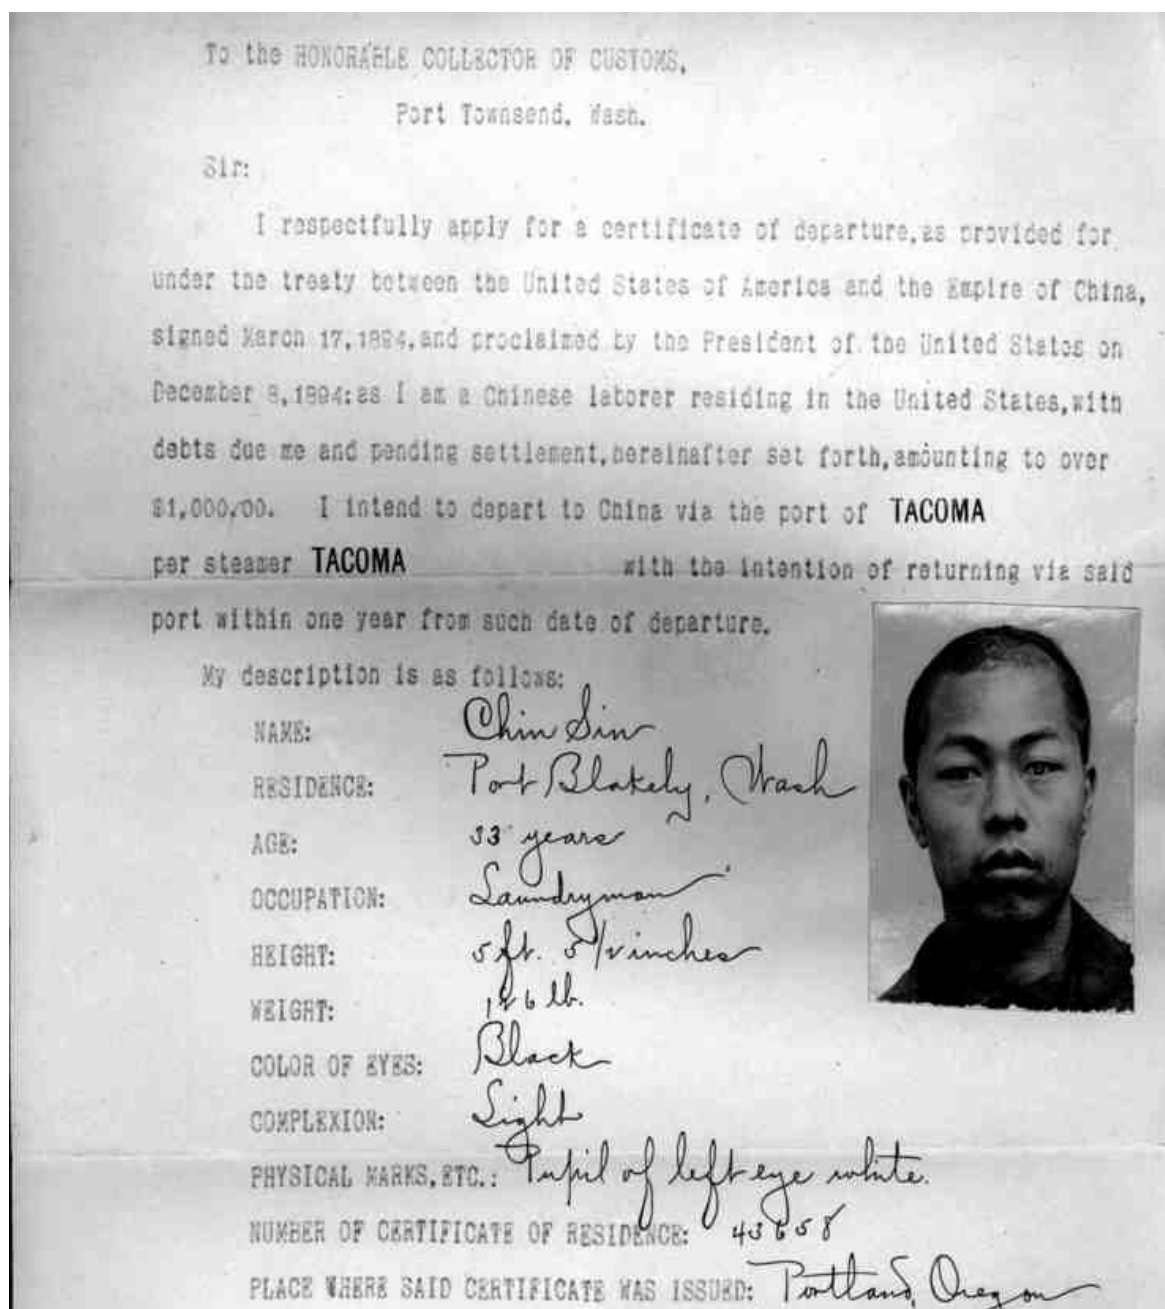 To the HONORABLE COLLECTOR OF CUSTOMS,
Port Townsend, Wash.
Sir:
I respectfully apply for a certificate of departure, as provided for
under the treaty between the United States of America and the Empire of China,
signed March 17, 1894, and proclaimed by the President of the United States on
December 8, 1894: as I am a Chinese laborer residing in the United States, with
debts due me and pending settlement, hereinafter set forth, amounting to over
$1,000.00. I intend to depart to China via the port of TACOMA
per steamer TACOMA with the intention of returning via said
port within one year from such date of departure.
My description is as follows:
NAME: Chin Sin
RESIDENCE: Port Blakely, Wash
AGE: 33 years
OCCUPATION: Laundryman
HEIGHT: 5 ft. 5 1/2 inches
WEIGHT: 126 lb.
COLOR OF EYES: Black
COMPLEXION: Light
PHYSICAL MARKS, ETC.: Pupil of left eye white.
NUMBER OF CERTIFICATE OF RESIDENCE: 43658
PLACE WHERE SAID CERTIFICATE WAS ISSUED: Portland, Oregon